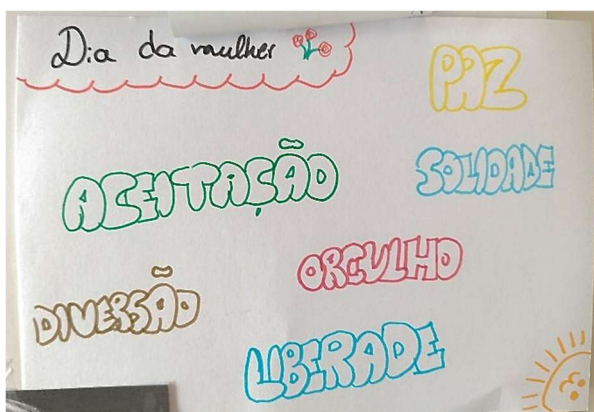 Dia da mulher
PAZ
ACEITAÇÃO
SOLIDADE
ORGULHO
DIVERSÃO
LIBERADE